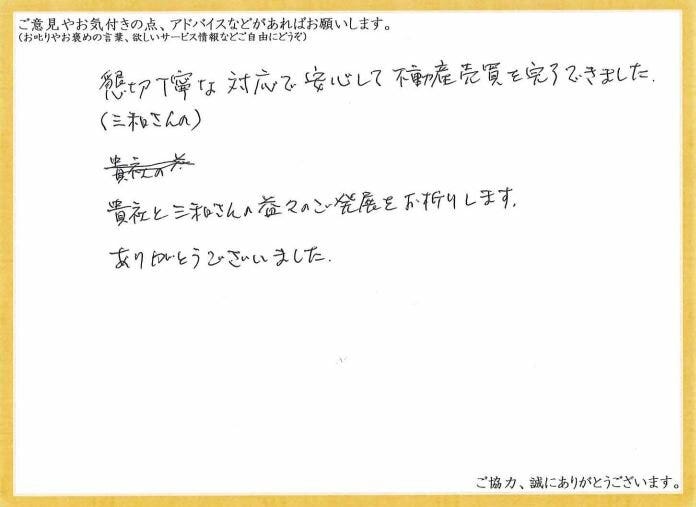 ご意見やお気付きの点、アドバイスなどがあればお願いします。
(お叱りやお褒めの言葉、欲しいサービス情報などご自由にどうぞ)
懇切丁寧な対応で安心して不動産売買を完了できました。
(三和さんの)
貴社の益
貴社と三和さんの益々のご発展をお祈りします。
ありがとうございました。
ご協力、誠にありがとうございます。